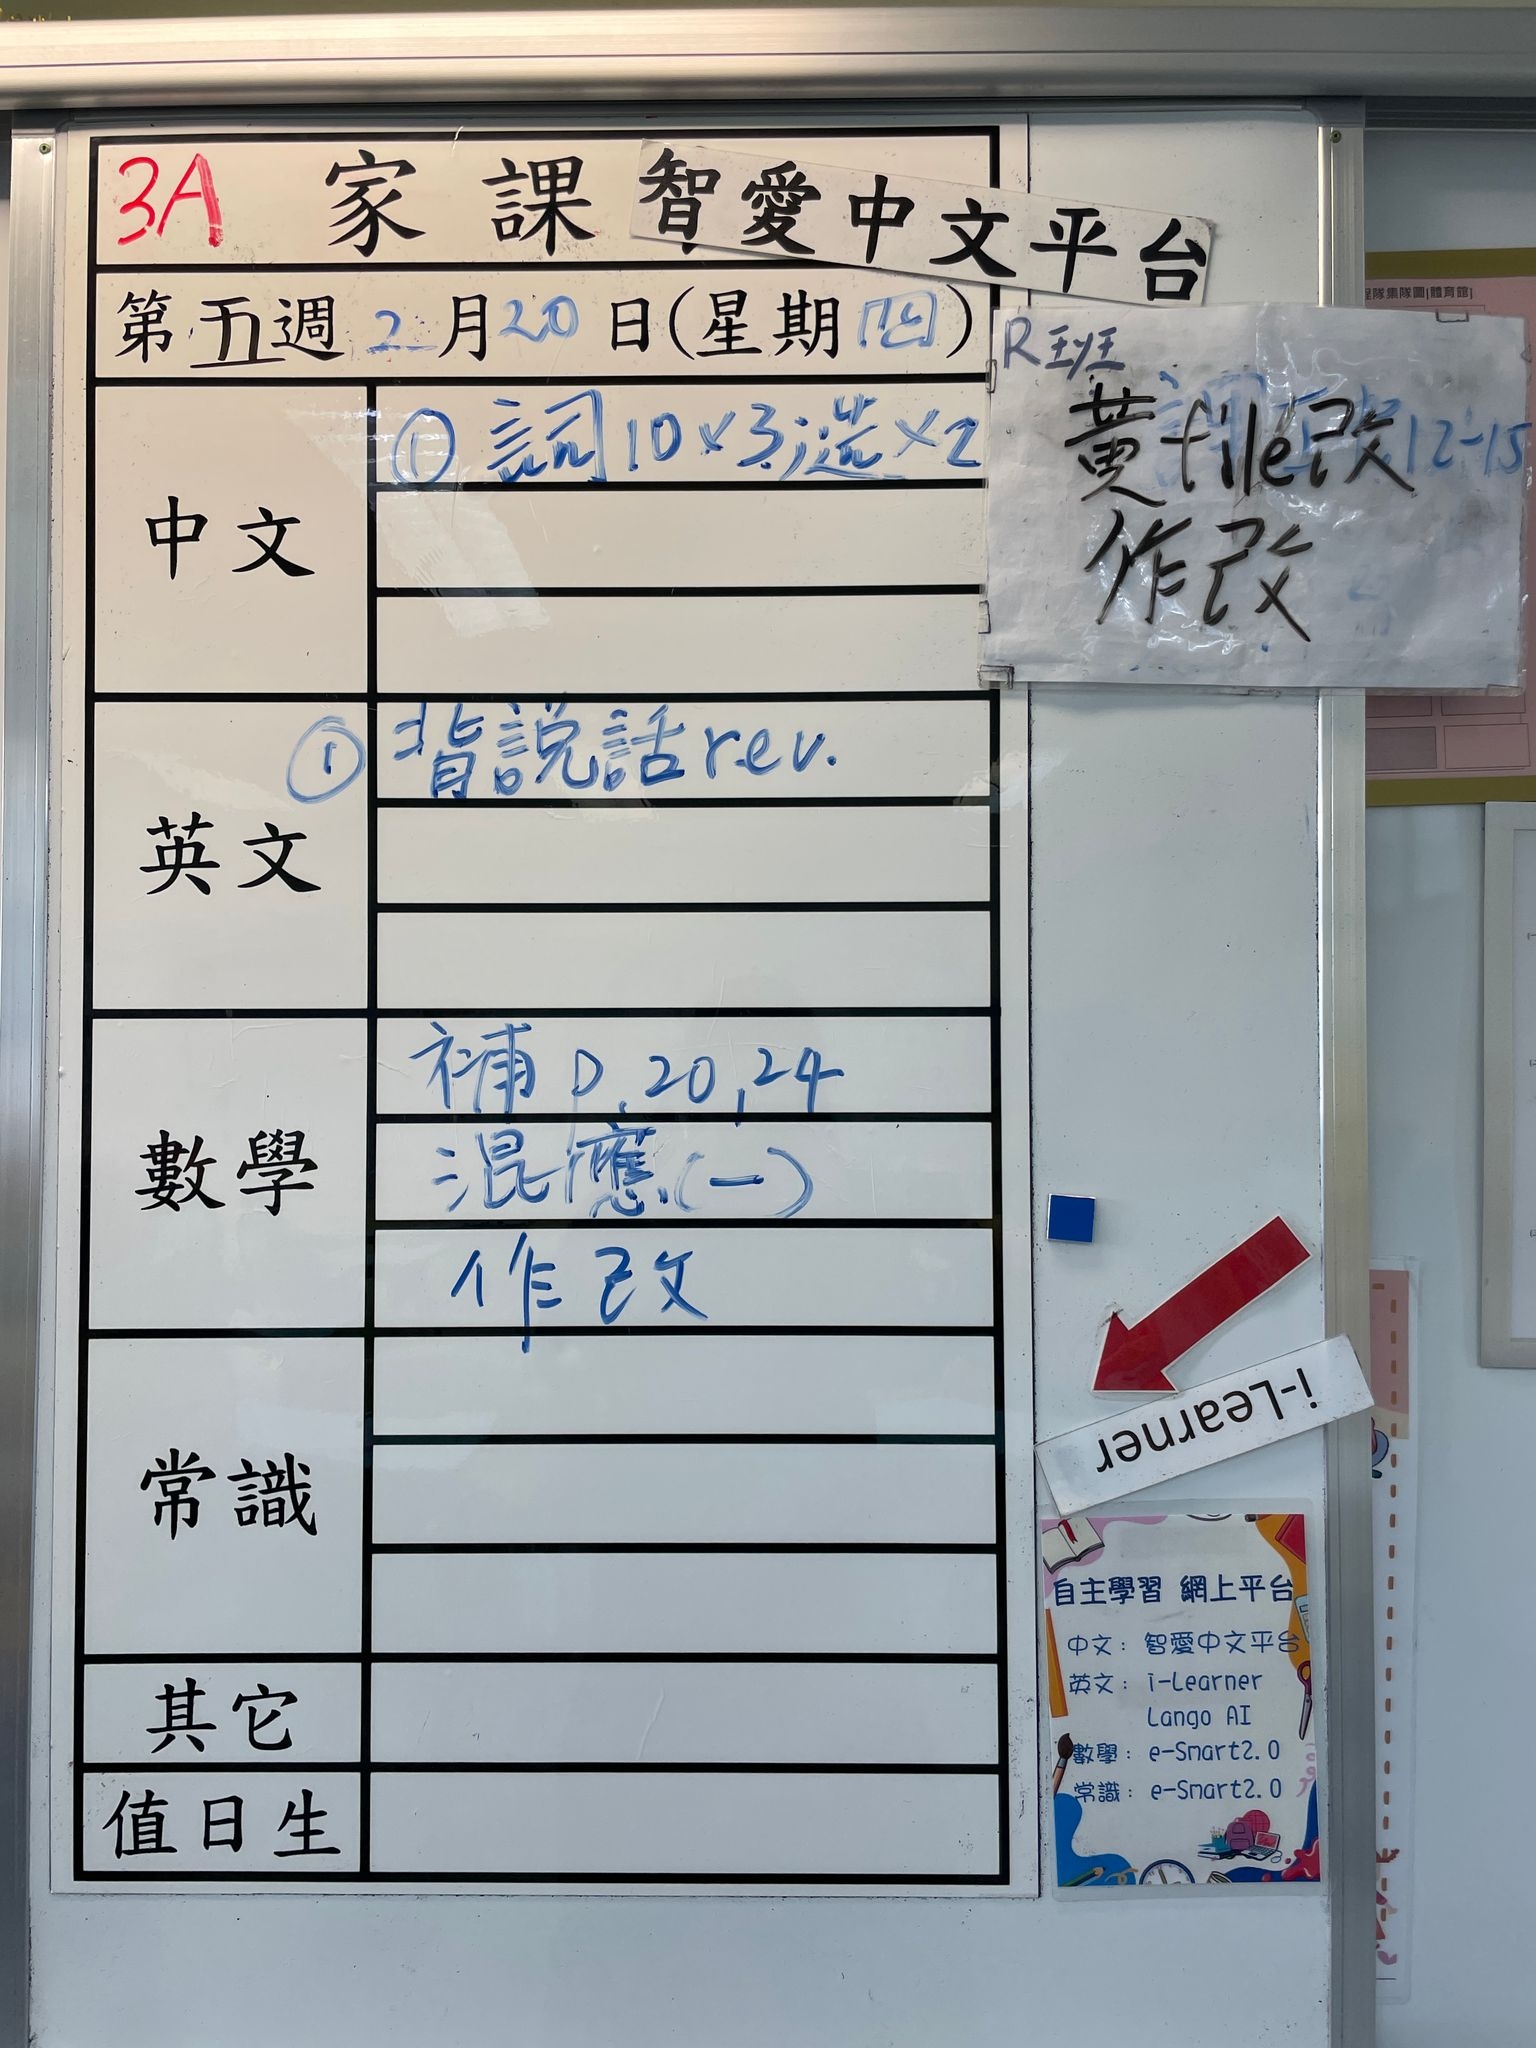 3A 家課 智愛中文平台
第五週 2月20日(星期四)
中文
① 詞10×3,造×2
R班
黃file改
作改
12-15
英文
① 背說話rev.
數學
補 p.20,24
混應.(一)
作改
常識
其它
值日生
i-Learner
自主學習 網上平台
中文：智愛中文平台
英文：i-Learner
Lango AI
數學：e-Smart2.0
常識：e-Smart2.0